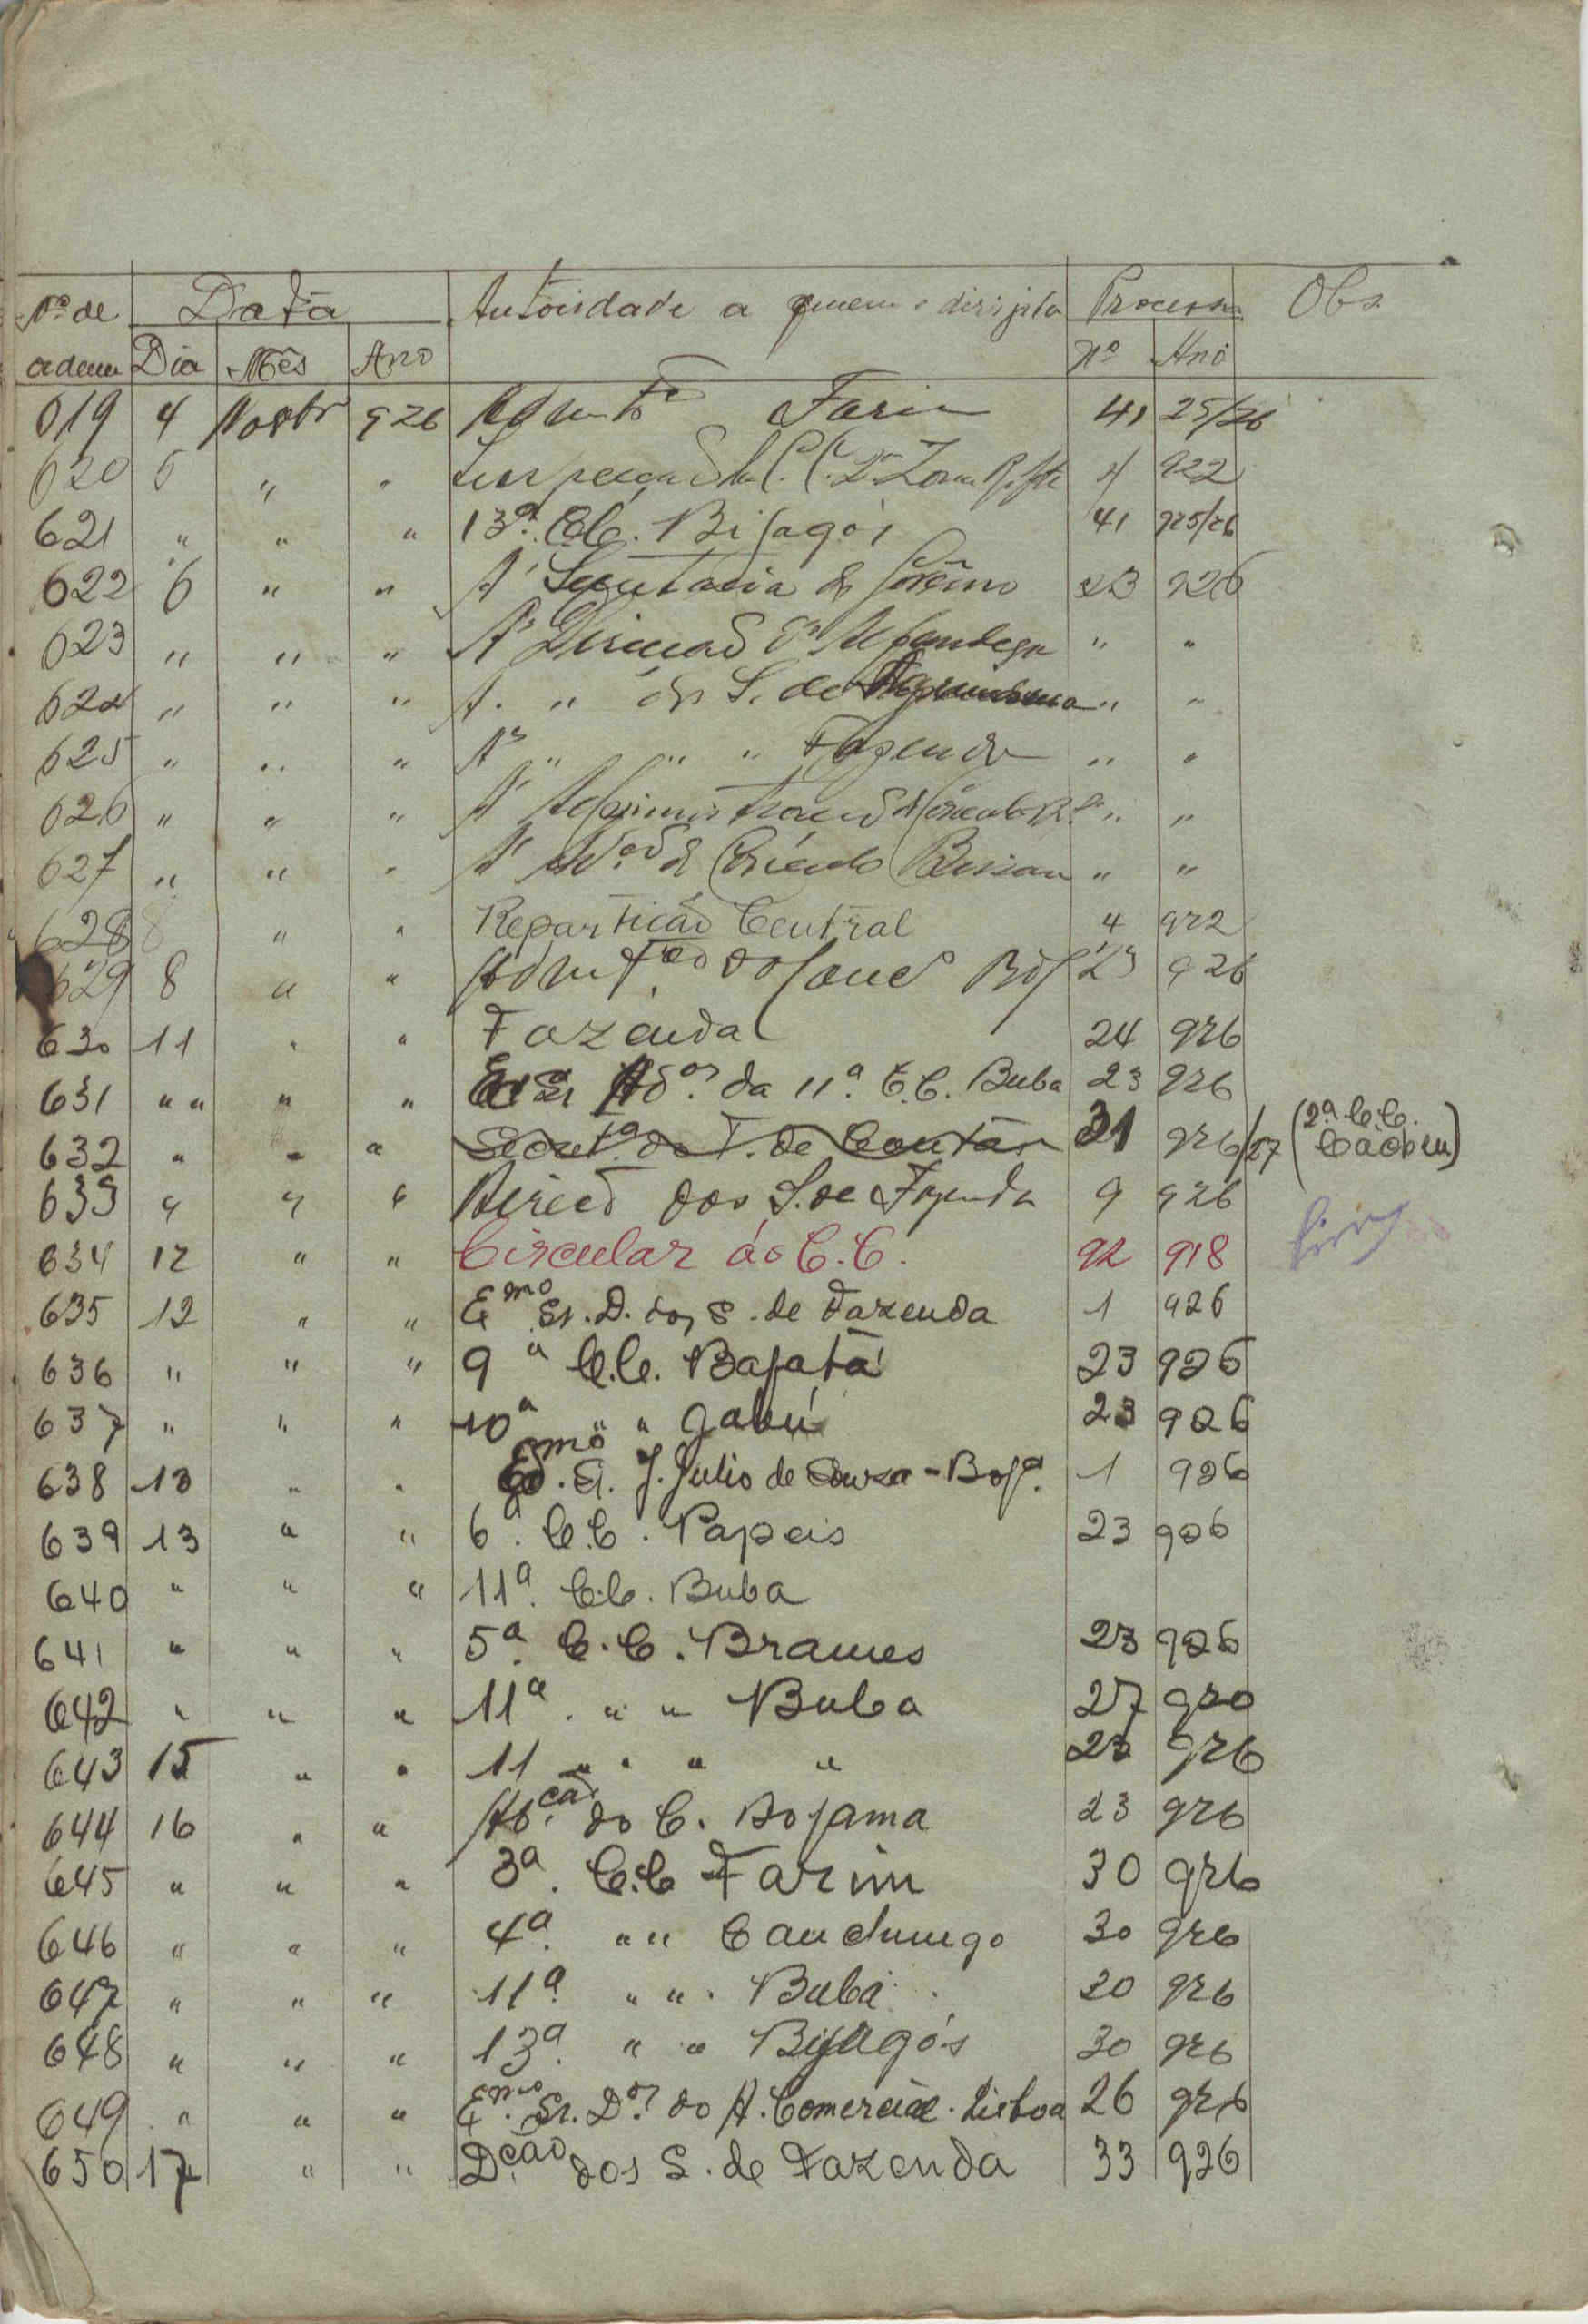 Nº de Data Autoridade a quem é dirijida Processo Obs.
ordem Dia Mês Ano Nº Ano
619 4 Novbr 926 Farim 41 25/26
620 5 " " 4 922
621 " " " 13ª C.C. Bijagós 41 925/26
622 6 " " A' Secretaria do Govêrno 23 926
623 " " " A' Direcção d' Alfandega " "
624 " " " A. " dos S. de " "
625 " " " A' " " " Fazenda " "
626 " " " A' Administração " "
627 " " " A' do Circulo Bissau " "
628 8 " " Repartição Central 4 922
629 8 " " 23 926
630 11 " " Fazenda 24 926
631 " " " " Sr Adºr. da 11ª C.C. Buba 23 926
632 " " " Secretª. do T. de Contas 31 926/27 (2ª. C.C. Cacheu)
633 " " " Direcº dos S. de Fazenda 9 926
634 12 " " Circular ás C.C. 92 918
635 12 " " Emo Sr. D. dos S. de Fazenda 1 926
636 " " " 9ª C.C. Bafatá 23 926
637 " " " 10ª " " Gabú 23 926
638 13 " " Emo. Sr. J. Julio de Souza - Bofª. 1 926
639 13 " " 6ª. C.C. Papeis 23 926
640 " " " 11ª. C.C. Buba
641 " " " 5ª. C.C. Brames 23 926
642 " " " 11ª. " " Buba 27 920
643 15 " " 11 " " " " 23 926
644 16 " " Ad.ção do C. Bofama 23 926
645 " " " 3ª. C.C Farim 30 926
646 " " " 4ª. " " Canchungo 30 926
647 " " " 11ª. " " . Buba 30 926
648 " " " 13ª. " " Bijagós 30 926
649 " " " Emo. Sr. D.or do A. Comercial. Lisboa 26 926
650 17 " " Dção dos S. de Fazenda 33 926